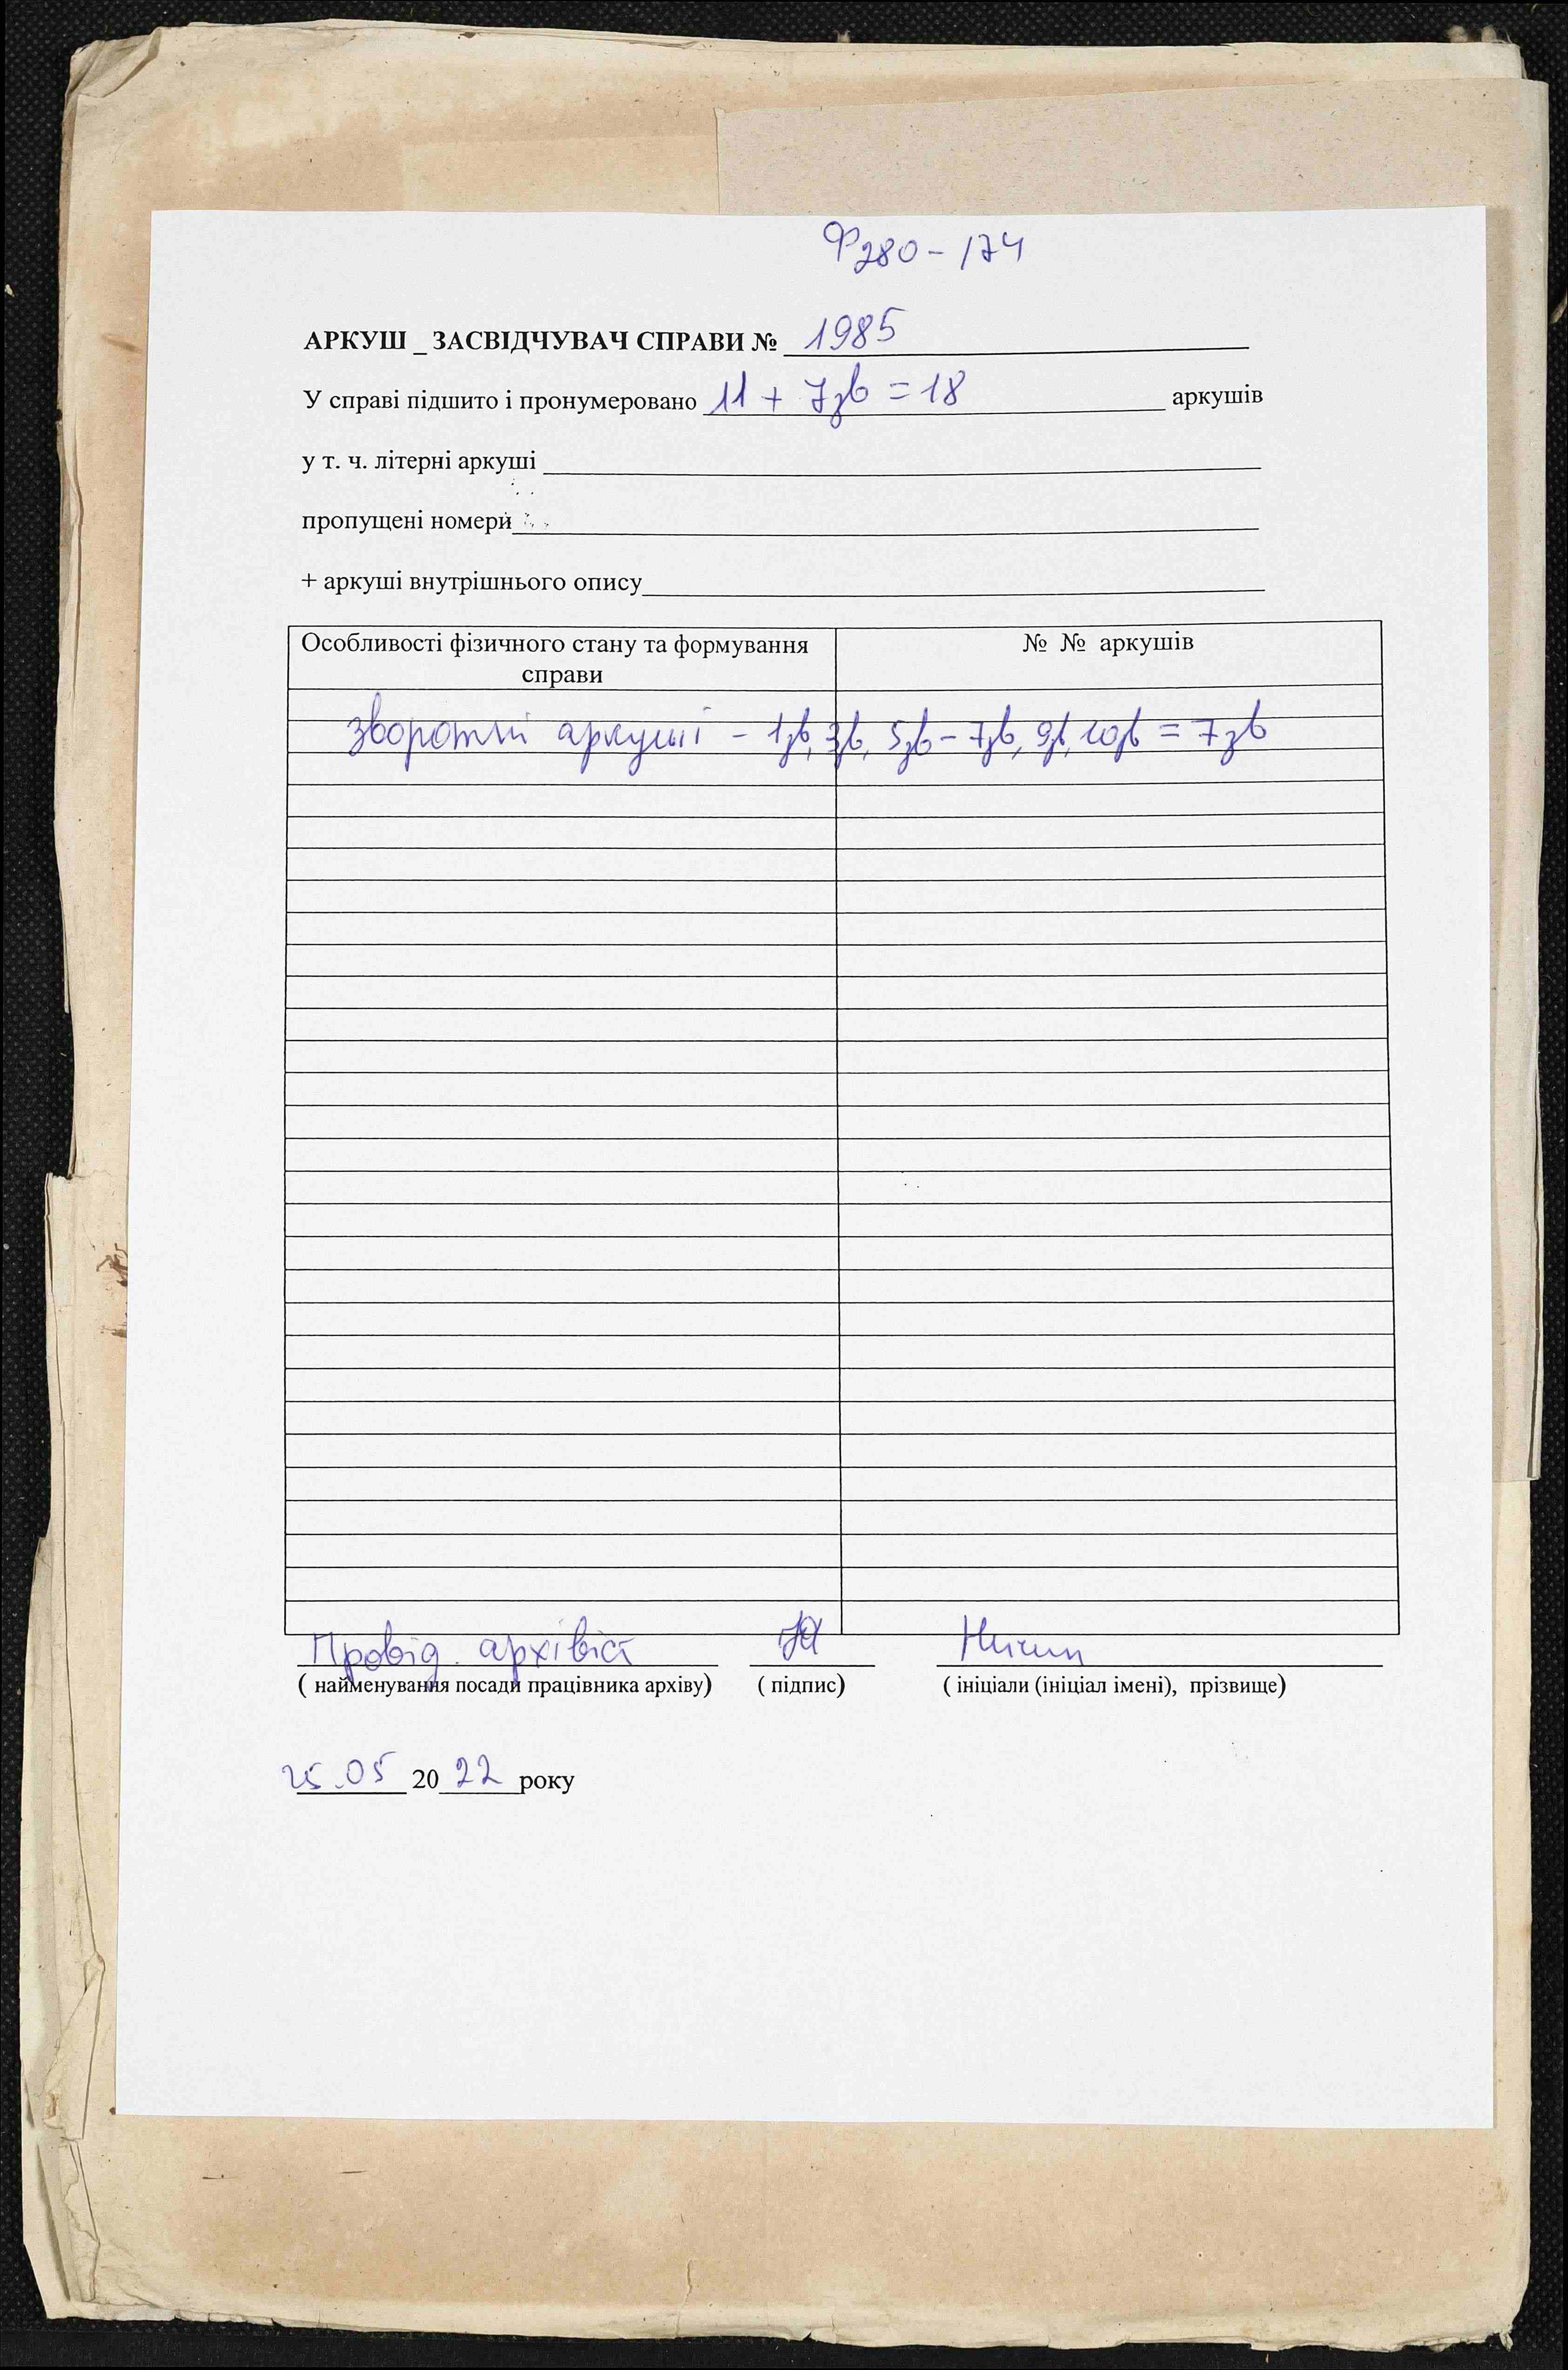 Ф280-174
АРКУШ _ ЗАСВІДЧУВАЧ СПРАВИ № 1985
У справі підшито і пронумеровано 11 + 7зв = 18 аркушів
у т. ч. літерні аркуші
пропущені номери
+ аркуші внутрішнього опису
Особливості фізичного стану та формування справи
№ № аркушів
зворотні аркуші - 1зв, 3зв, 5зв-7зв, 9зв, 10зв = 7зв
Провід. архівіст
( найменування посади працівника архіву) ( підпис) ( ініціали (ініціал імені), прізвище)
25.05 2022 року